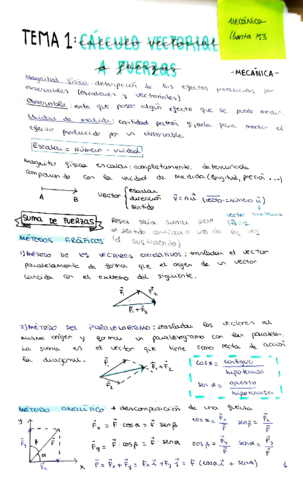 Mecánica
TEMA 1: CÁLCULO VECTORIAL
A FUERZAS
-MECÁNICA-
Magnitud física: descripción de los efectos producidos por
observables (escalares y vectoriales)
Observable: ente que posee algún efecto que se puede medir
Unidad de medida: cantidad patrón fijada para medir el
efecto producido por un observable.
Escalar = Número · unidad
Magnitud física escalar: completamente determinada
comparando con la unidad de medida (longitud, peso ...)
A B
vector
escalar
dirección
sentido
vector unitario
SUMA DE FUERZAS
Resta sería sumar pero
el sentido contrario uno de los
(el sustraendo)
MÉTODOS GRÁFICOS
1) MÉTODO DE LOS VECTORES CONSECUTIVOS: trasladar el vector
paralelamente de forma que el origen de un vector
coincida con el extremo del siguiente.
F₁ F₂
F₁+F₂
2) MÉTODO DEL PARALELOGRAMO: trasladar los vectores al
mismo origen y formar un paralelogramo con las paralelas.
La suma es el vector que tiene como recta de acción
la diagonal.
F₁ F₁+F₂
F₂
cos α = contiguo / hipotenusa
sen α = opuesto / hipotenusa
MÉTODO ANALÍTICO → descomposición de una fuerza
y
x
Fx = F · cos α = F sen β
Fy = F · cos β = F sen α
F = Fx + Fy = Fx i + Fy j = F (cos α i + sen α j)
1